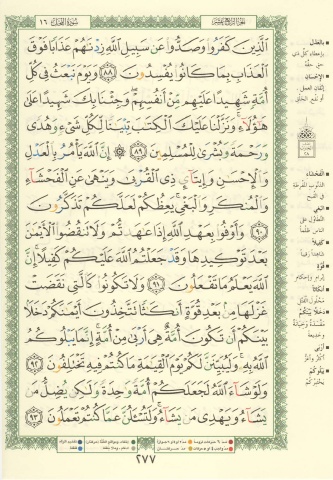 سورة النحل ١٦
الجزء الرابع عشر
الذين كفروا وصدوا عن سبيل الله زدنهم عذابا فوق
العذاب بما كانوا يفسدون ٨٨ ويوم نبعث فى كل
أمة شهيدا عليهم من أنفسهم وجئنا بك شهيدا على
هؤلاء ونزلنا عليك الكتب تبينا لكل شىء وهدى
ورحمة وبشرى للمسلمين ٨٩ إن الله يأمر بالعدل
والإحسن وإيتاى ذى القربى وينهى عن الفحشاء
والمنكر والبغى يعظكم لعلكم تذكرون
٩٠ وأوفوا بعهد الله إذا عهدتم ولا تنقضوا الأيمن
بعد توكيدها وقد جعلتم الله عليكم كفيلا إن
الله يعلم ما تفعلون ٩١ ولا تكونوا كالتى نقضت
غزلها من بعد قوة أنكثا تتخذون أيمنكم دخلا
بينكم أن تكون أمة هى أربى من أمة إنما يبلوكم
الله به وليبينن لكم يوم القيمة ما كنتم فيه تختلفون ٩٢
ولو شاء الله لجعلكم أمة وحدة ولكن يضل من
يشاء ويهدى من يشاء ولتسئلن عما كنتم تعملون ٩٣
٢٧٧
بالعدل
الإحسان
الفحشاء
البغي
كفيلا
قوة
أنكاثا
دخلا بينكم
أربى
يبلوكم